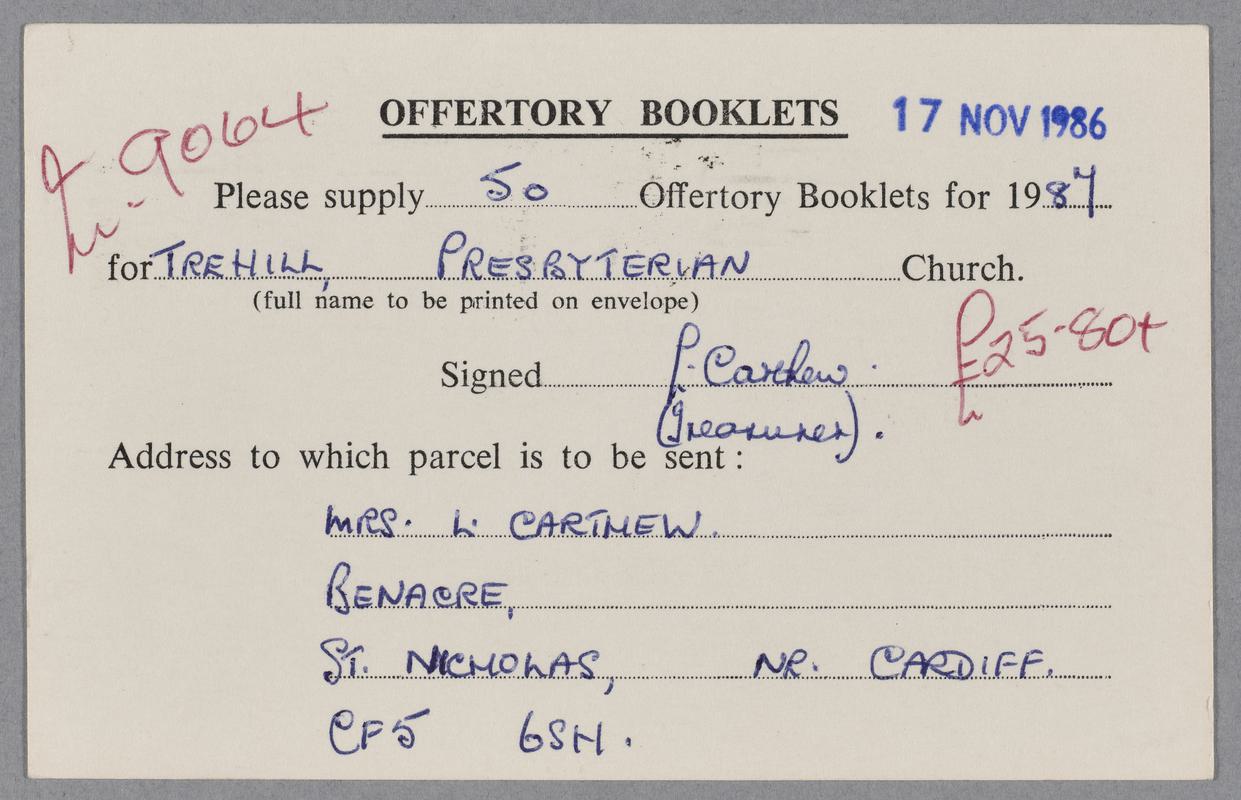 OFFERTORY BOOKLETS 17 NOV 1986
9064
Please supply 50 Offertory Booklets for 1987
for TREHILL, PRESBYTERIAN Church.
(full name to be printed on envelope)
£25-80+
Signed L. Carthew.
(Treasurer).
Address to which parcel is to be sent:
MRS. L. CARTHEW.
BENACRE,
ST. NICHOLAS, NR. CARDIFF.
CF5 6SH.